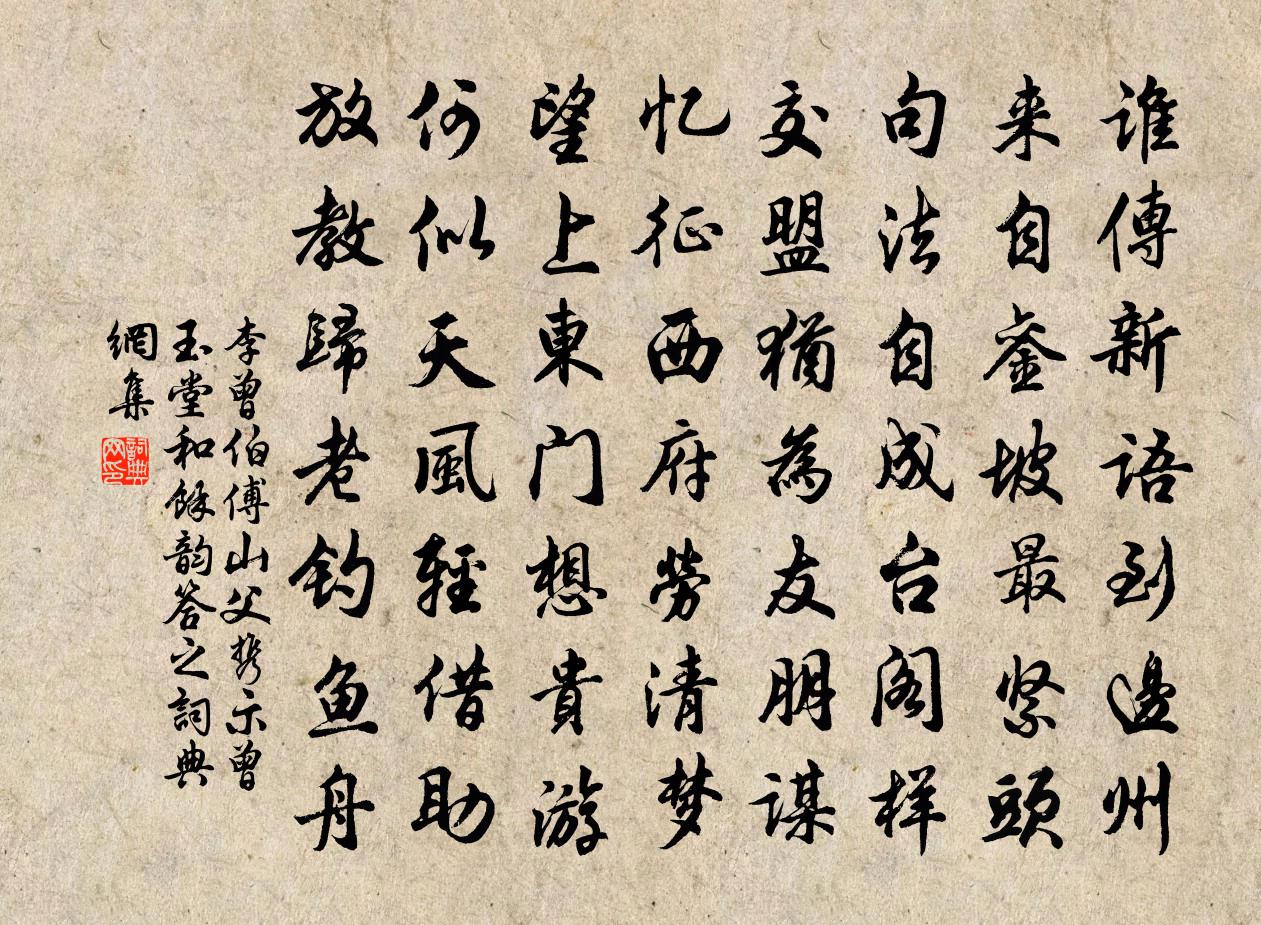 誰傳新語到邊州
来自銮坡最紧頭
句法自成台阁样
交盟猶為友朋謀
忆征西府劳清梦
望上東门想貴游
何似天風輕借助
放教歸老钓鱼舟
李曾伯傅山父携示曾
玉堂和餘韵答之詞典
網集
詞典網印